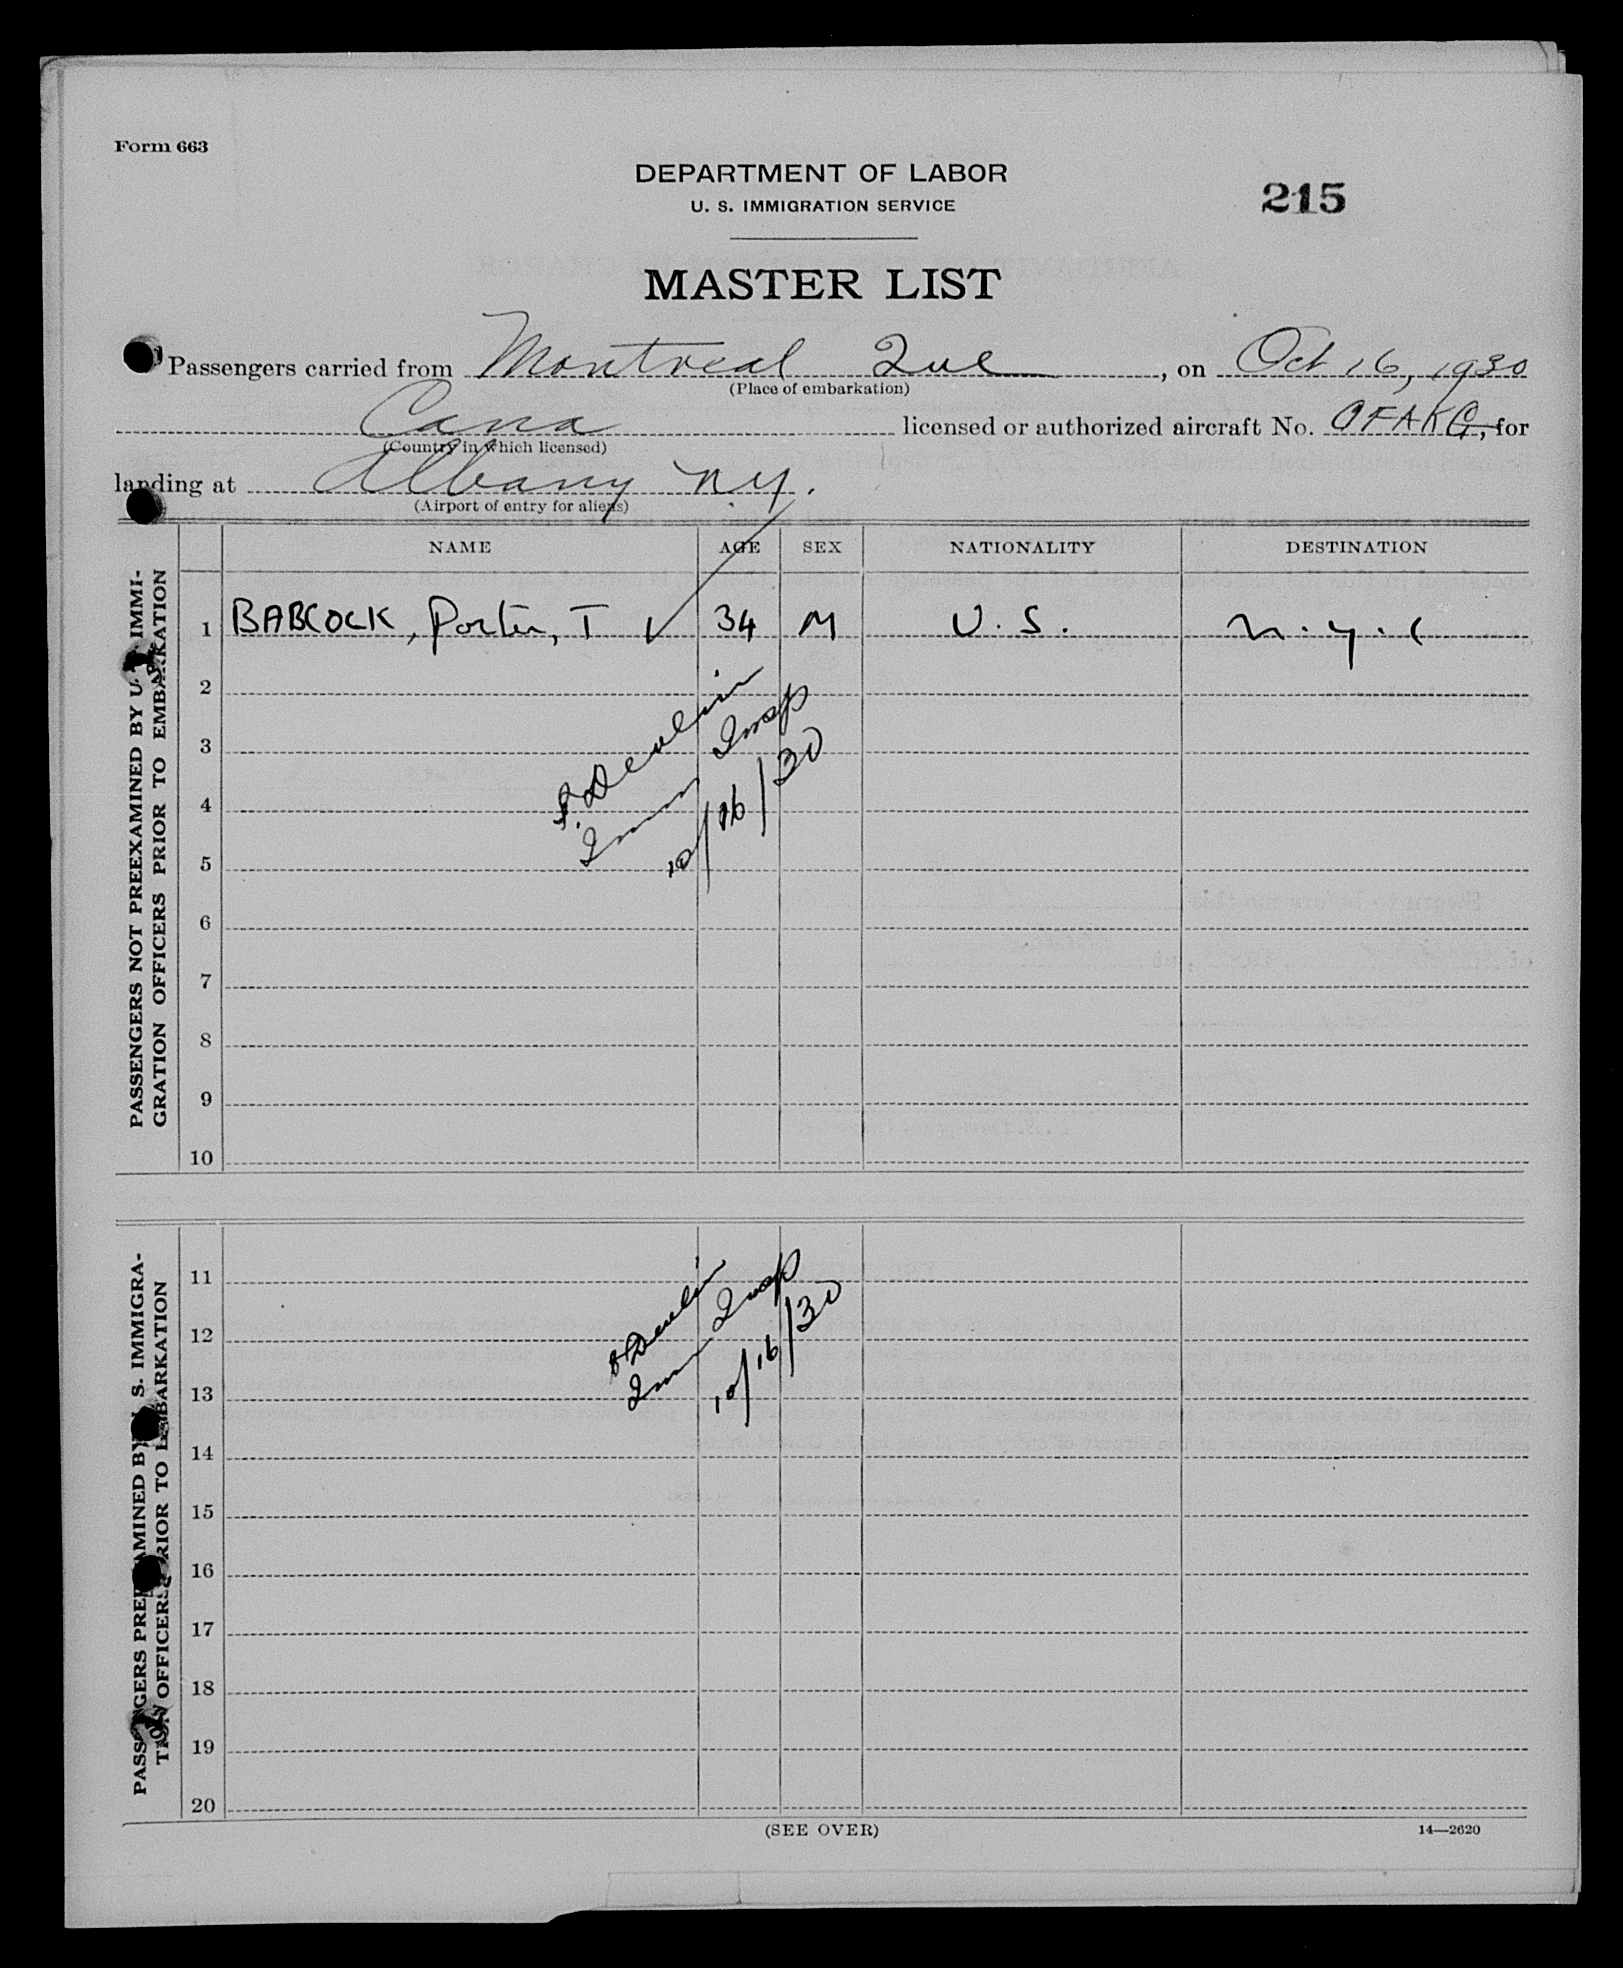 Form 663
DEPARTMENT OF LABOR
U. S. IMMIGRATION SERVICE
215
MASTER LIST
Passengers carried from Montreal Que, on Oct 16, 1930
(Place of embarkation)
Cana licensed or authorized aircraft No. CFAKG, for
(Country in which licensed)
landing at Albany N.Y.
(Airport of entry for aliens)
NAME AGE SEX NATIONALITY DESTINATION
PASSENGERS NOT PREEXAMINED BY U. S. IMMI-
GRATION OFFICERS PRIOR TO EMBARKATION
1 BABCOCK, Porter, T ✓ 34 M U. S. N. Y. C
2
3
4
5
6
7
8
9
10
Devlin
Imm Insp
10/16/30
PASSENGERS PREEXAMINED BY U. S. IMMIGRA-
TION OFFICERS PRIOR TO EMBARKATION
11
12
13
14
15
16
17
18
19
20
Devlin
Imm Insp
10/16/30
(SEE OVER)
14—2620